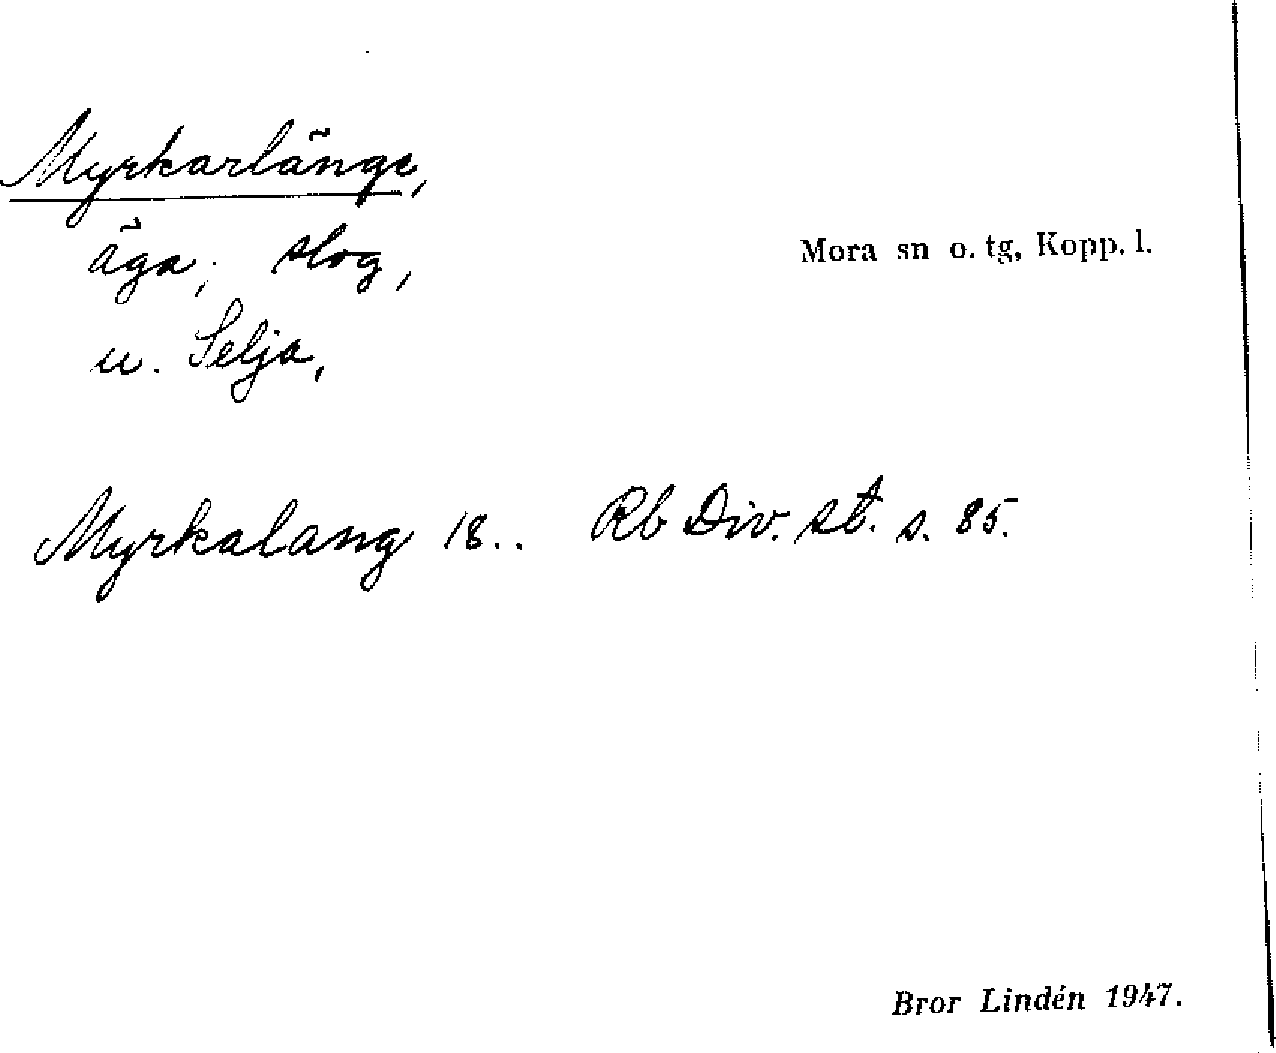 Myrkarlänge,
äga, slog,
Mora sn o. tg, Kopp. l.
u. Selja,
Myrkalang 18.. Rb Div. st. s. 85.
Bror Lindén 1947.